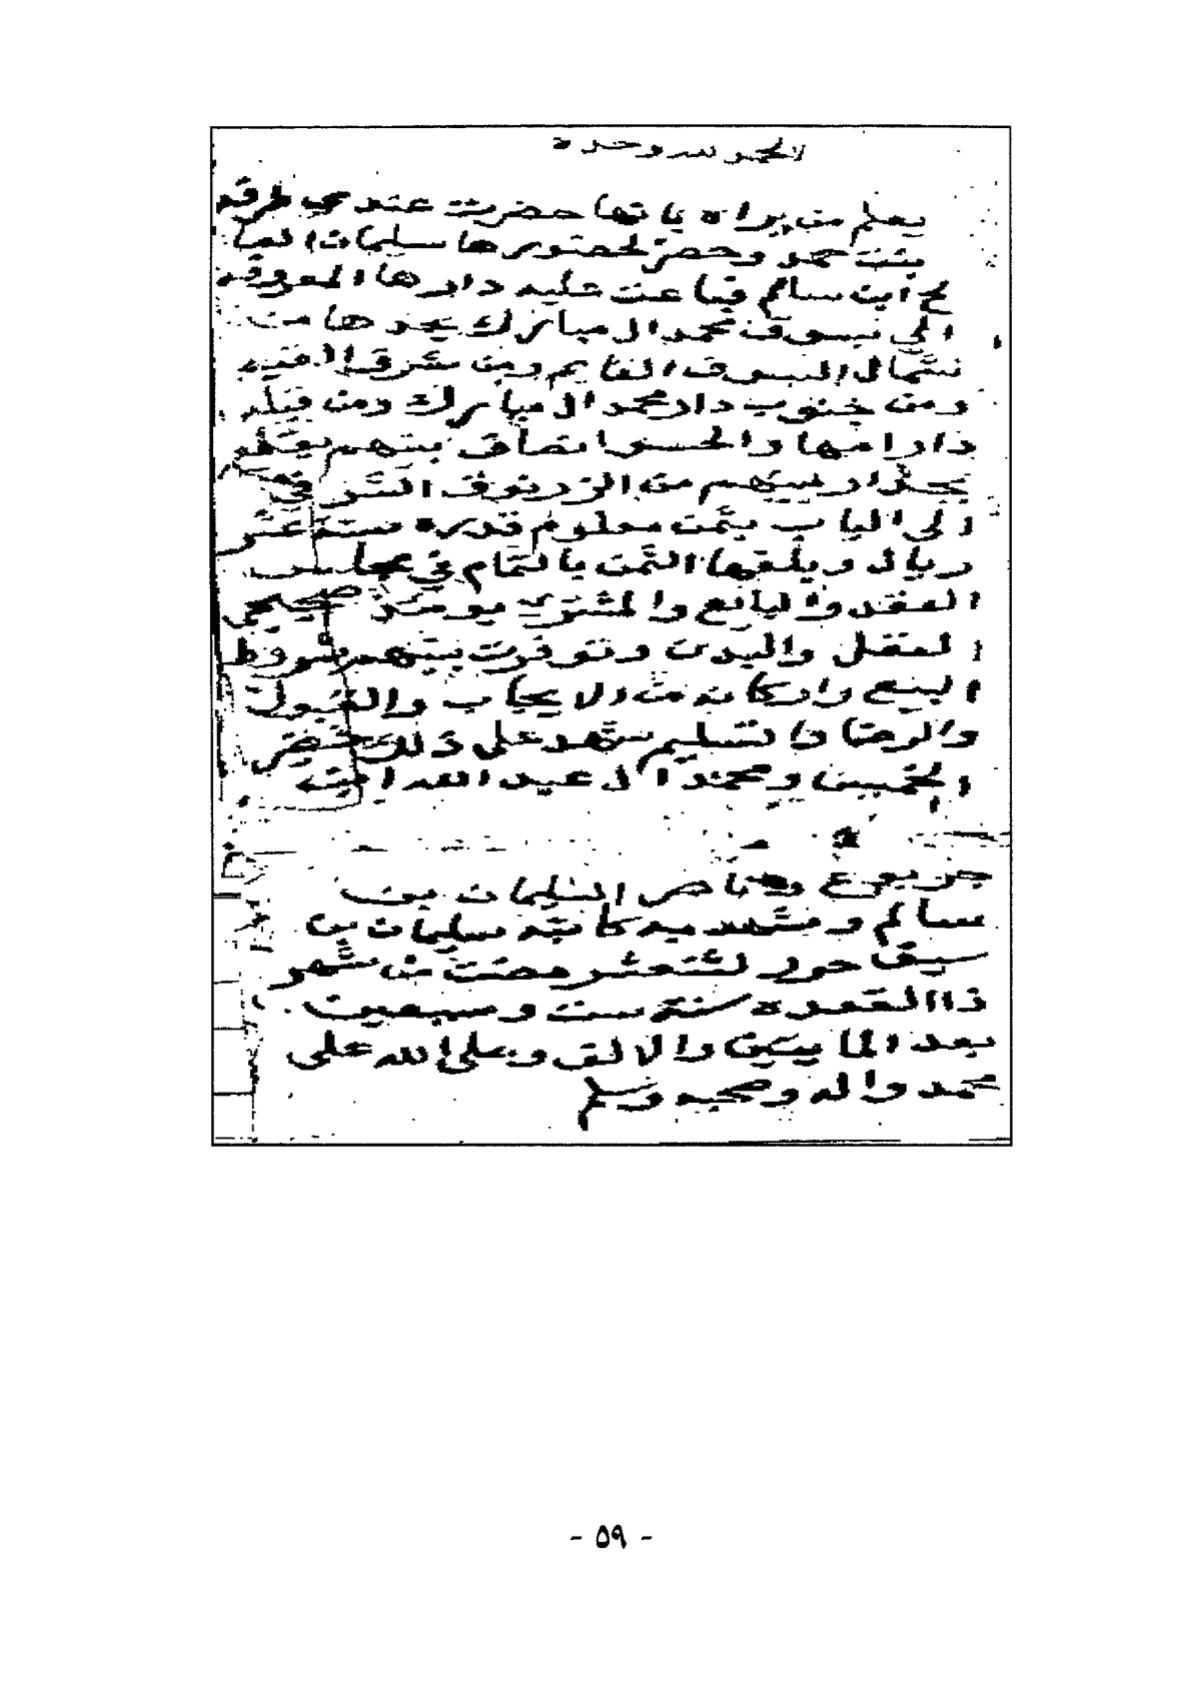 الحمد لله وحده
يعلم من يراه بانها حضرت عندي طرفه
بنت حمد وحضر لحضورها سليمان الصا
لح ابن سالم فباعت عليه دارها المعروفه
الي نبسوق محمد ال مبارك يحدها من
شمال السوق القايم ومن شرق
ومن جنوب دار محمد ال مبارك ومن قبله
دار امها والحسو انصاف بينهم
بجدار بينهم من الزرنوق الشرقي
الى الباب بثمن معلوم قدره ستة عشر
ريال وبلغها الثمن بالتمام في مجلس
العقد والبايع والمشتري يومئذ صحيحي
العقل والبدن وتوفرت بينهم شروط
البيع واركانه من الايجاب والقبول
والرضا والتسليم شهد على ذلك خضر
ومحمد ال عبد الله ابن
جربوع وناصر السليمان بن
سالم وشهد به كاتبه سليمان بن
سيف حرر لثنعشر مضت من شهر
ذا القعده سنة ست وسبعين
بعد المايتين والالف وصلى الله على
محمد واله وصحبه وسلم
- ٥٩ -